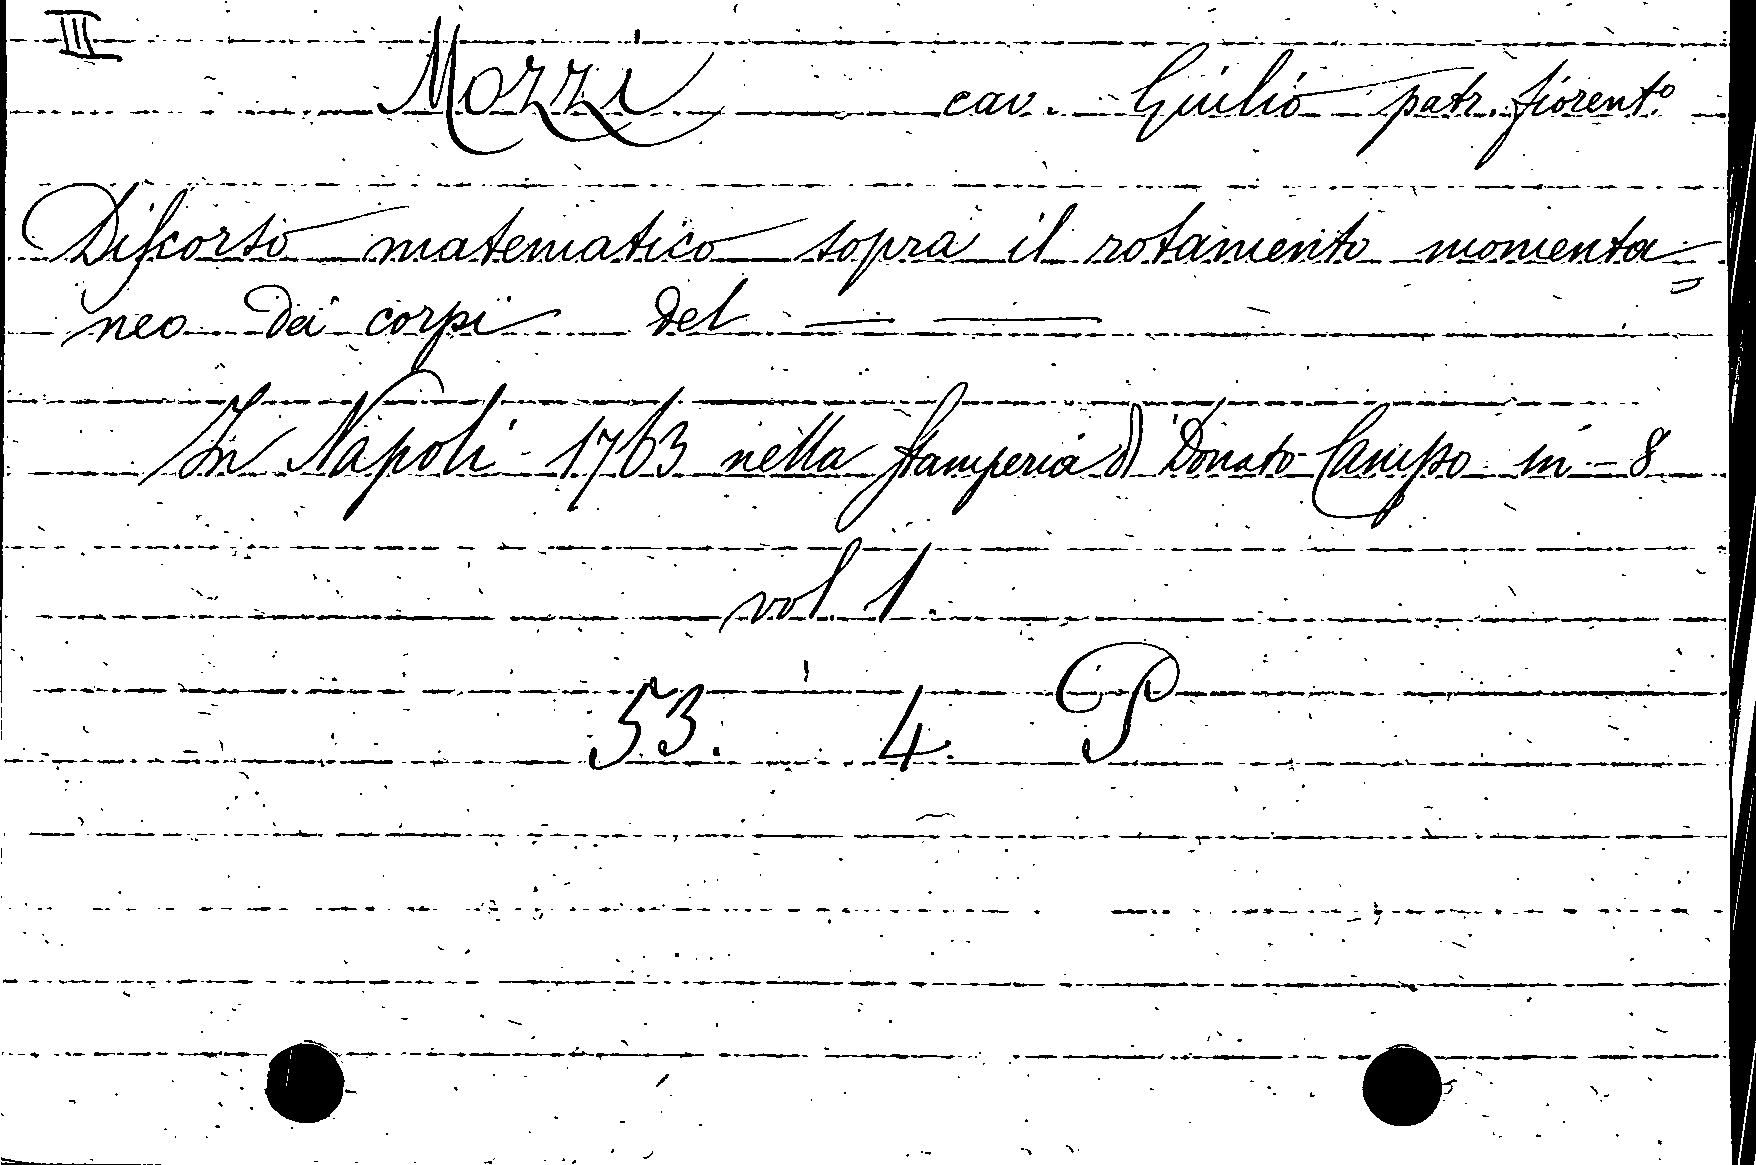 III
Mozzi cav. Giulio patr. fiorent.º
Diſcorso matematico sopra il rotamento momenta=
neo dei corpi del — —
In Napoli 1763 nella ſtamperia di Donato Campo in-8
vol. 1.
53. 4. P